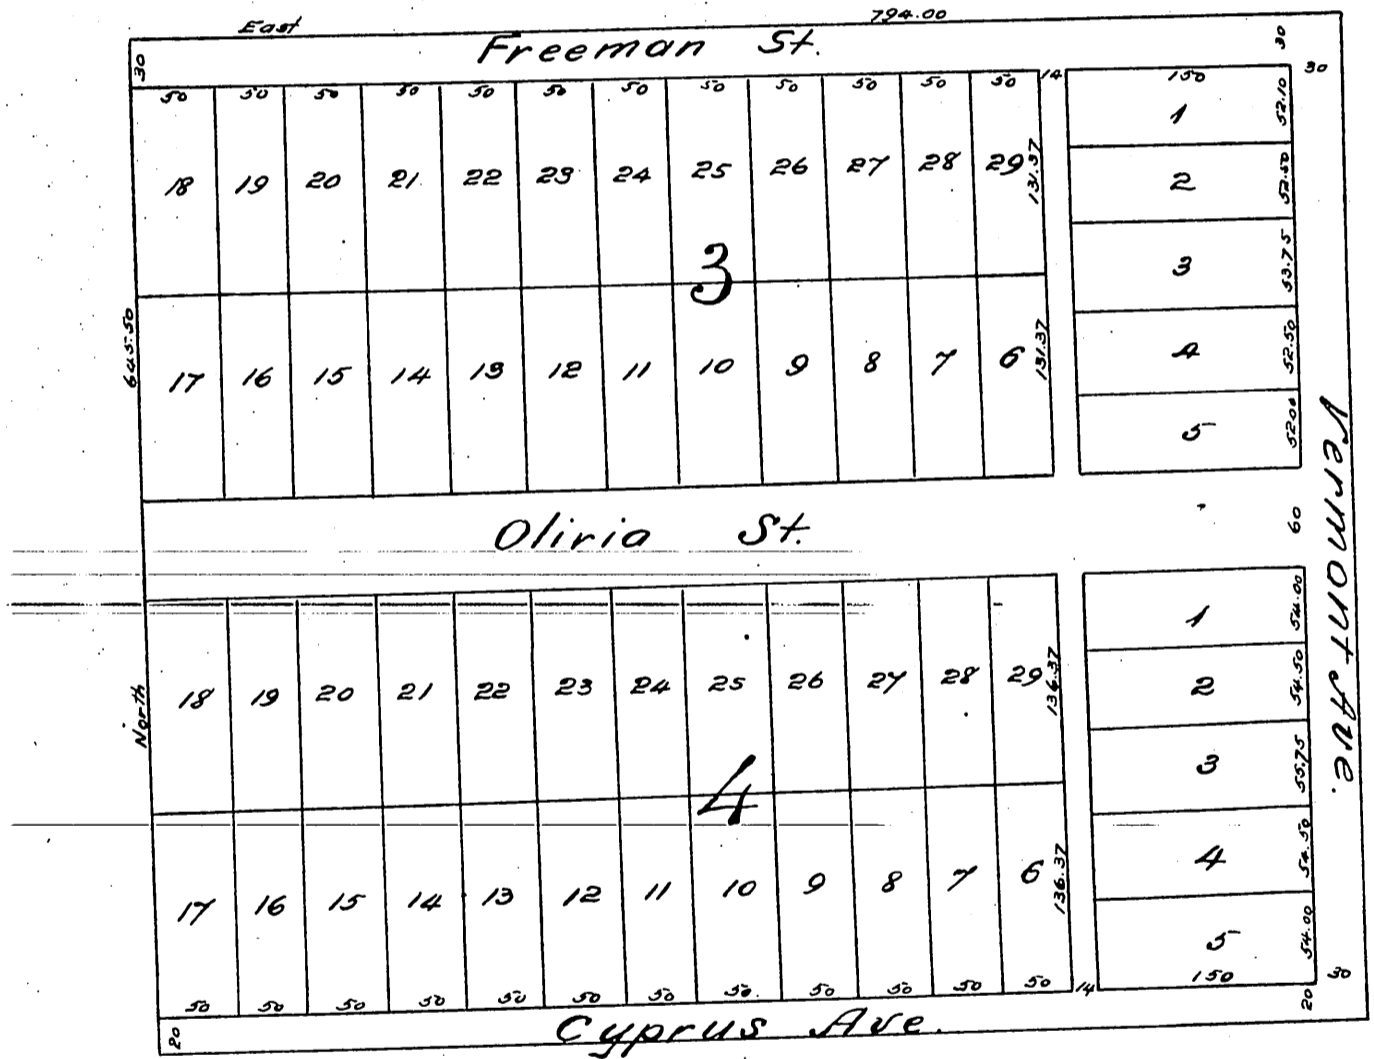 East 794.00
Freeman St.
30 30
50 50 50 50 50 50 50 50 50 50 50 50 14 150 30
18 19 20 21 22 23 24 25 26 27 28 29 131.37
1 52.10
2 52.50
3
3 53.75
645.50
17 16 15 14 13 12 11 10 9 8 7 6 131.37
4 52.50
5 52.00
Vermont Ave.
Oliria St.
60
1 54.00
18 19 20 21 22 23 24 25 26 27 28 29 136.37
2 54.50
North
4
3 55.75
17 16 15 14 13 12 11 10 9 8 7 6 136.37
4 54.50
5 54.00
50 50 50 50 50 50 50 50 50 50 50 50 14 150 30
20 20
Cyprus Ave.